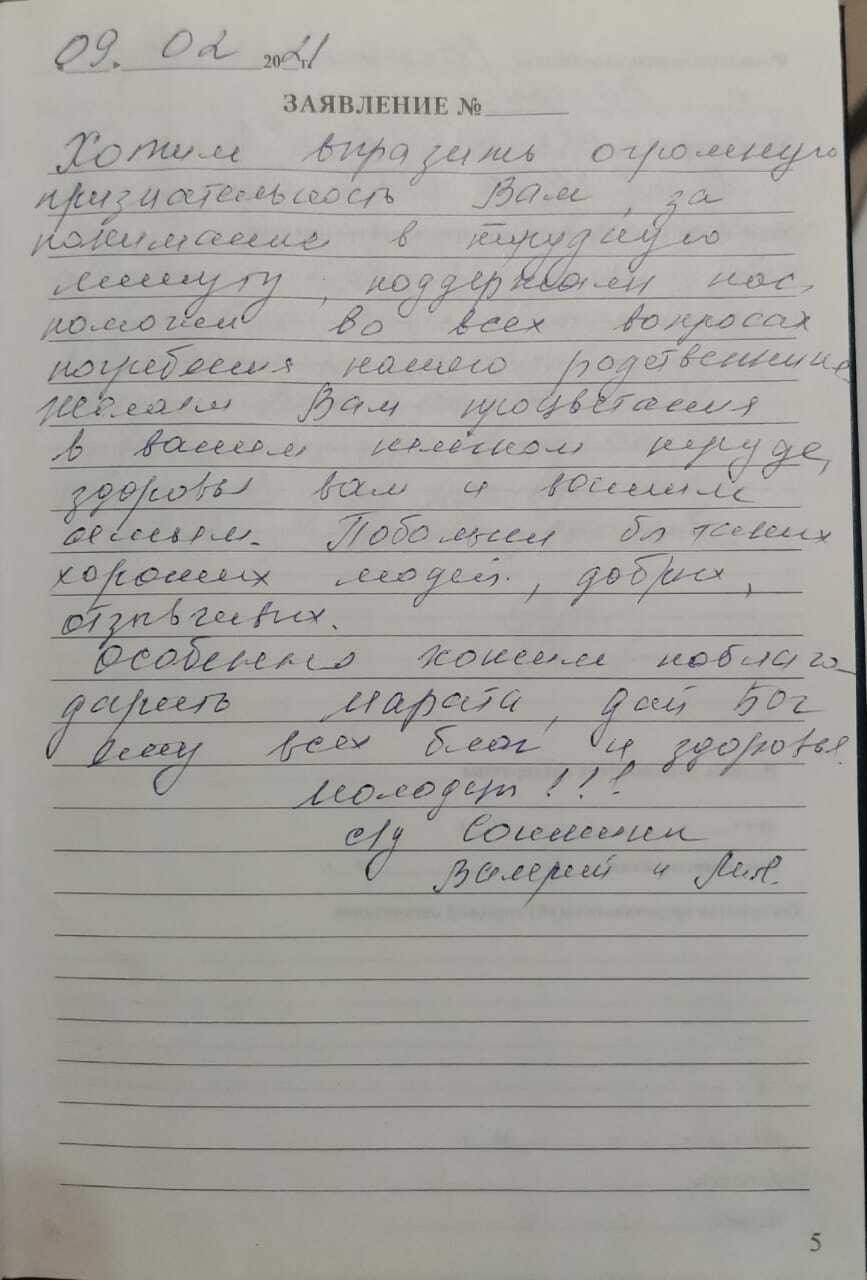 09. 02 2021г.
ЗАЯВЛЕНИЕ №
Хотим выразить огромную
признательность Вам, за
понимание в трудную
минуту, поддержали нас,
помогли во всех вопросах
погребения нашего родственника
Желаем Вам процветания
в вашем нелёгком труде,
здоровья вам и вашим
семьям. Побольше бы таких
хороших людей., добрых,
отзывчивых.
Особенно хотим поблаго-
дарить Марата, дай Бог
ему всех благ и здоровья.
Молодец!!!
с/у
Валерий и
5